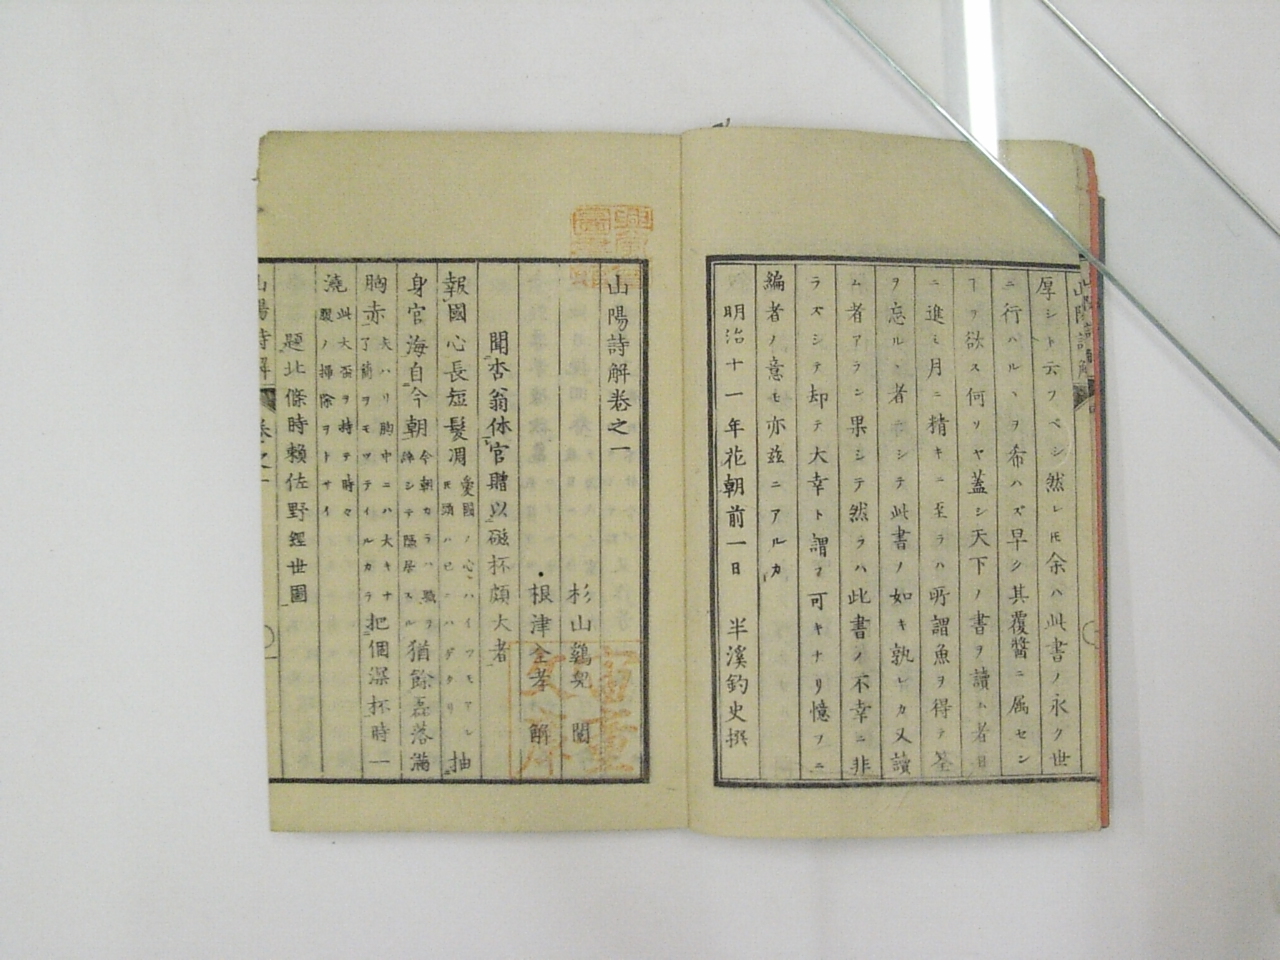 厚シト云フベシ然レ𪜈余ハ此書ノ永ク世
ニ行ハルヽヲ希ハズ早ク其覆醬ニ属セン
ヿヲ欲ス何ソヤ蓋シ天下ノ書ヲ讀ム者日
ニ進ミ月ニ精キニ至ラハ所謂魚ヲ得テ筌
ヲ忘ルヽ者ニシテ此書ノ如キ孰レカ又讀
ム者アラン果シテ然ラハ此書ノ不幸ニ非
ラズシテ却テ大幸ト謂フ可キナリ憶フニ
編者ノ意モ亦茲ニアルカ
明治十一年花朝前一日 半溪釣史撰
山陽詩解卷之一
杉山鷄児 閲
根津全孝 解
聞杏翁休官贈以磁杯頗大者
報國心長短髮凋 愛國ノ心ハイツモアレ𪜈頭ハ已ニハゲタリ 抽
身官海自今朝 今朝カラハ職ヲ辞シテ隠居スル 猶餘磊落滿
胸赤 夫ハリ胸中ニハ大キナ了簡ヲモツテイルカラ 把個深杯時一
澆 此大盃ヲ持テ時々 ノ掃除ヲトサイ
題北條時頼佐野經世圖
山陽詩解 卷之一